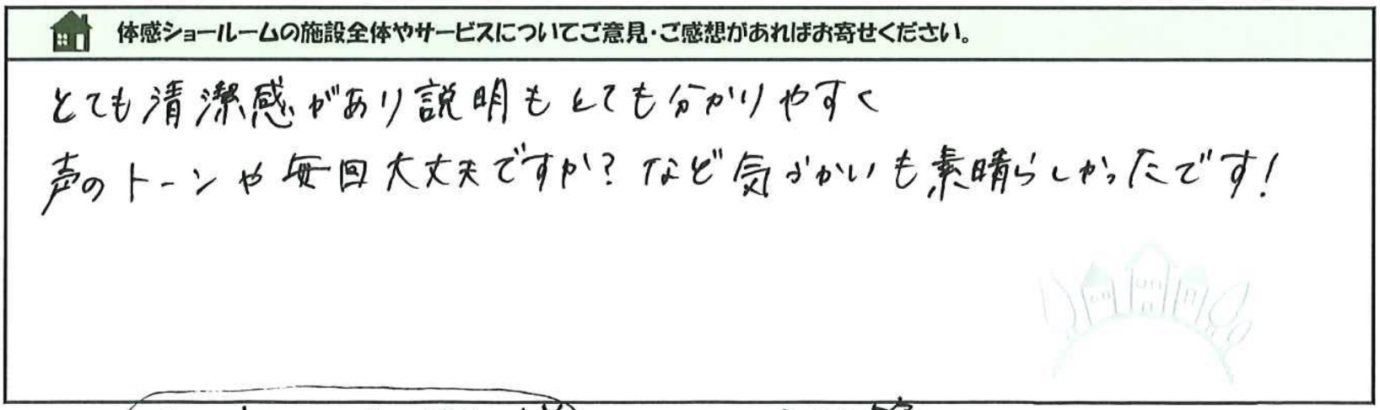 体感ショールームの施設全体やサービスについてご意見・ご感想があればお寄せください。
とても清潔感があり説明もとても分かりやすく
声のトーンや毎回大丈夫ですか?など気づかいも素晴らしかったです!